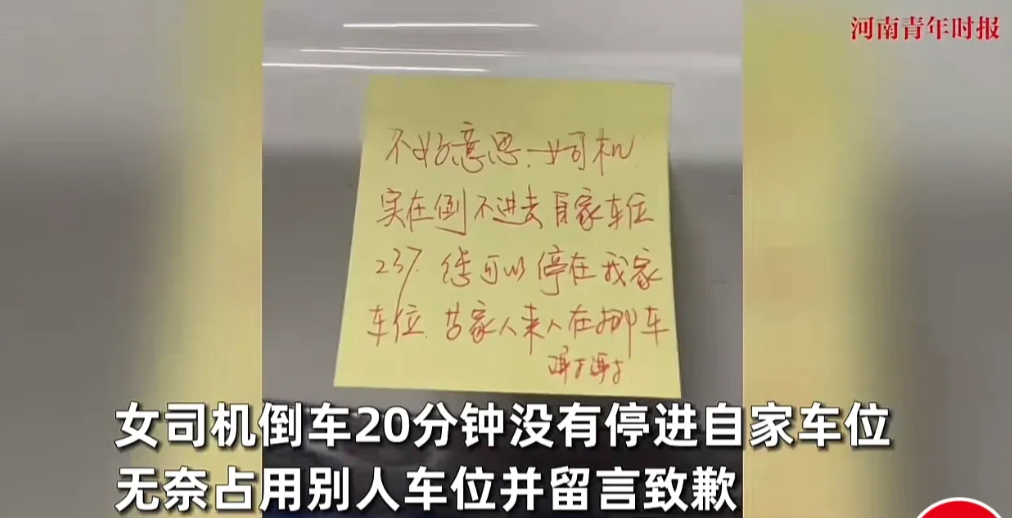 河南青年时报
不好意思.女司机
实在倒不进去自家车位
237.您可以停在我家
车位.等家人来人在挪车
谢谢
女司机倒车20分钟没有停进自家车位
无奈占用别人车位并留言致歉